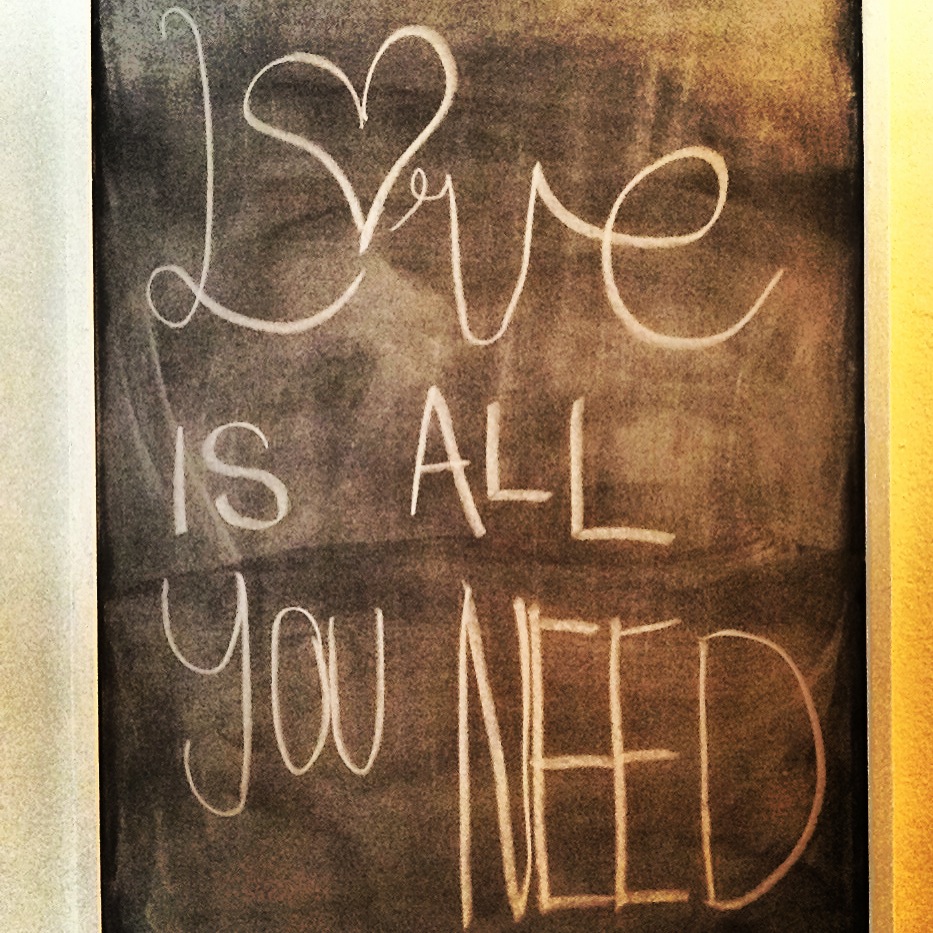 Love
IS ALL
YOU NEED